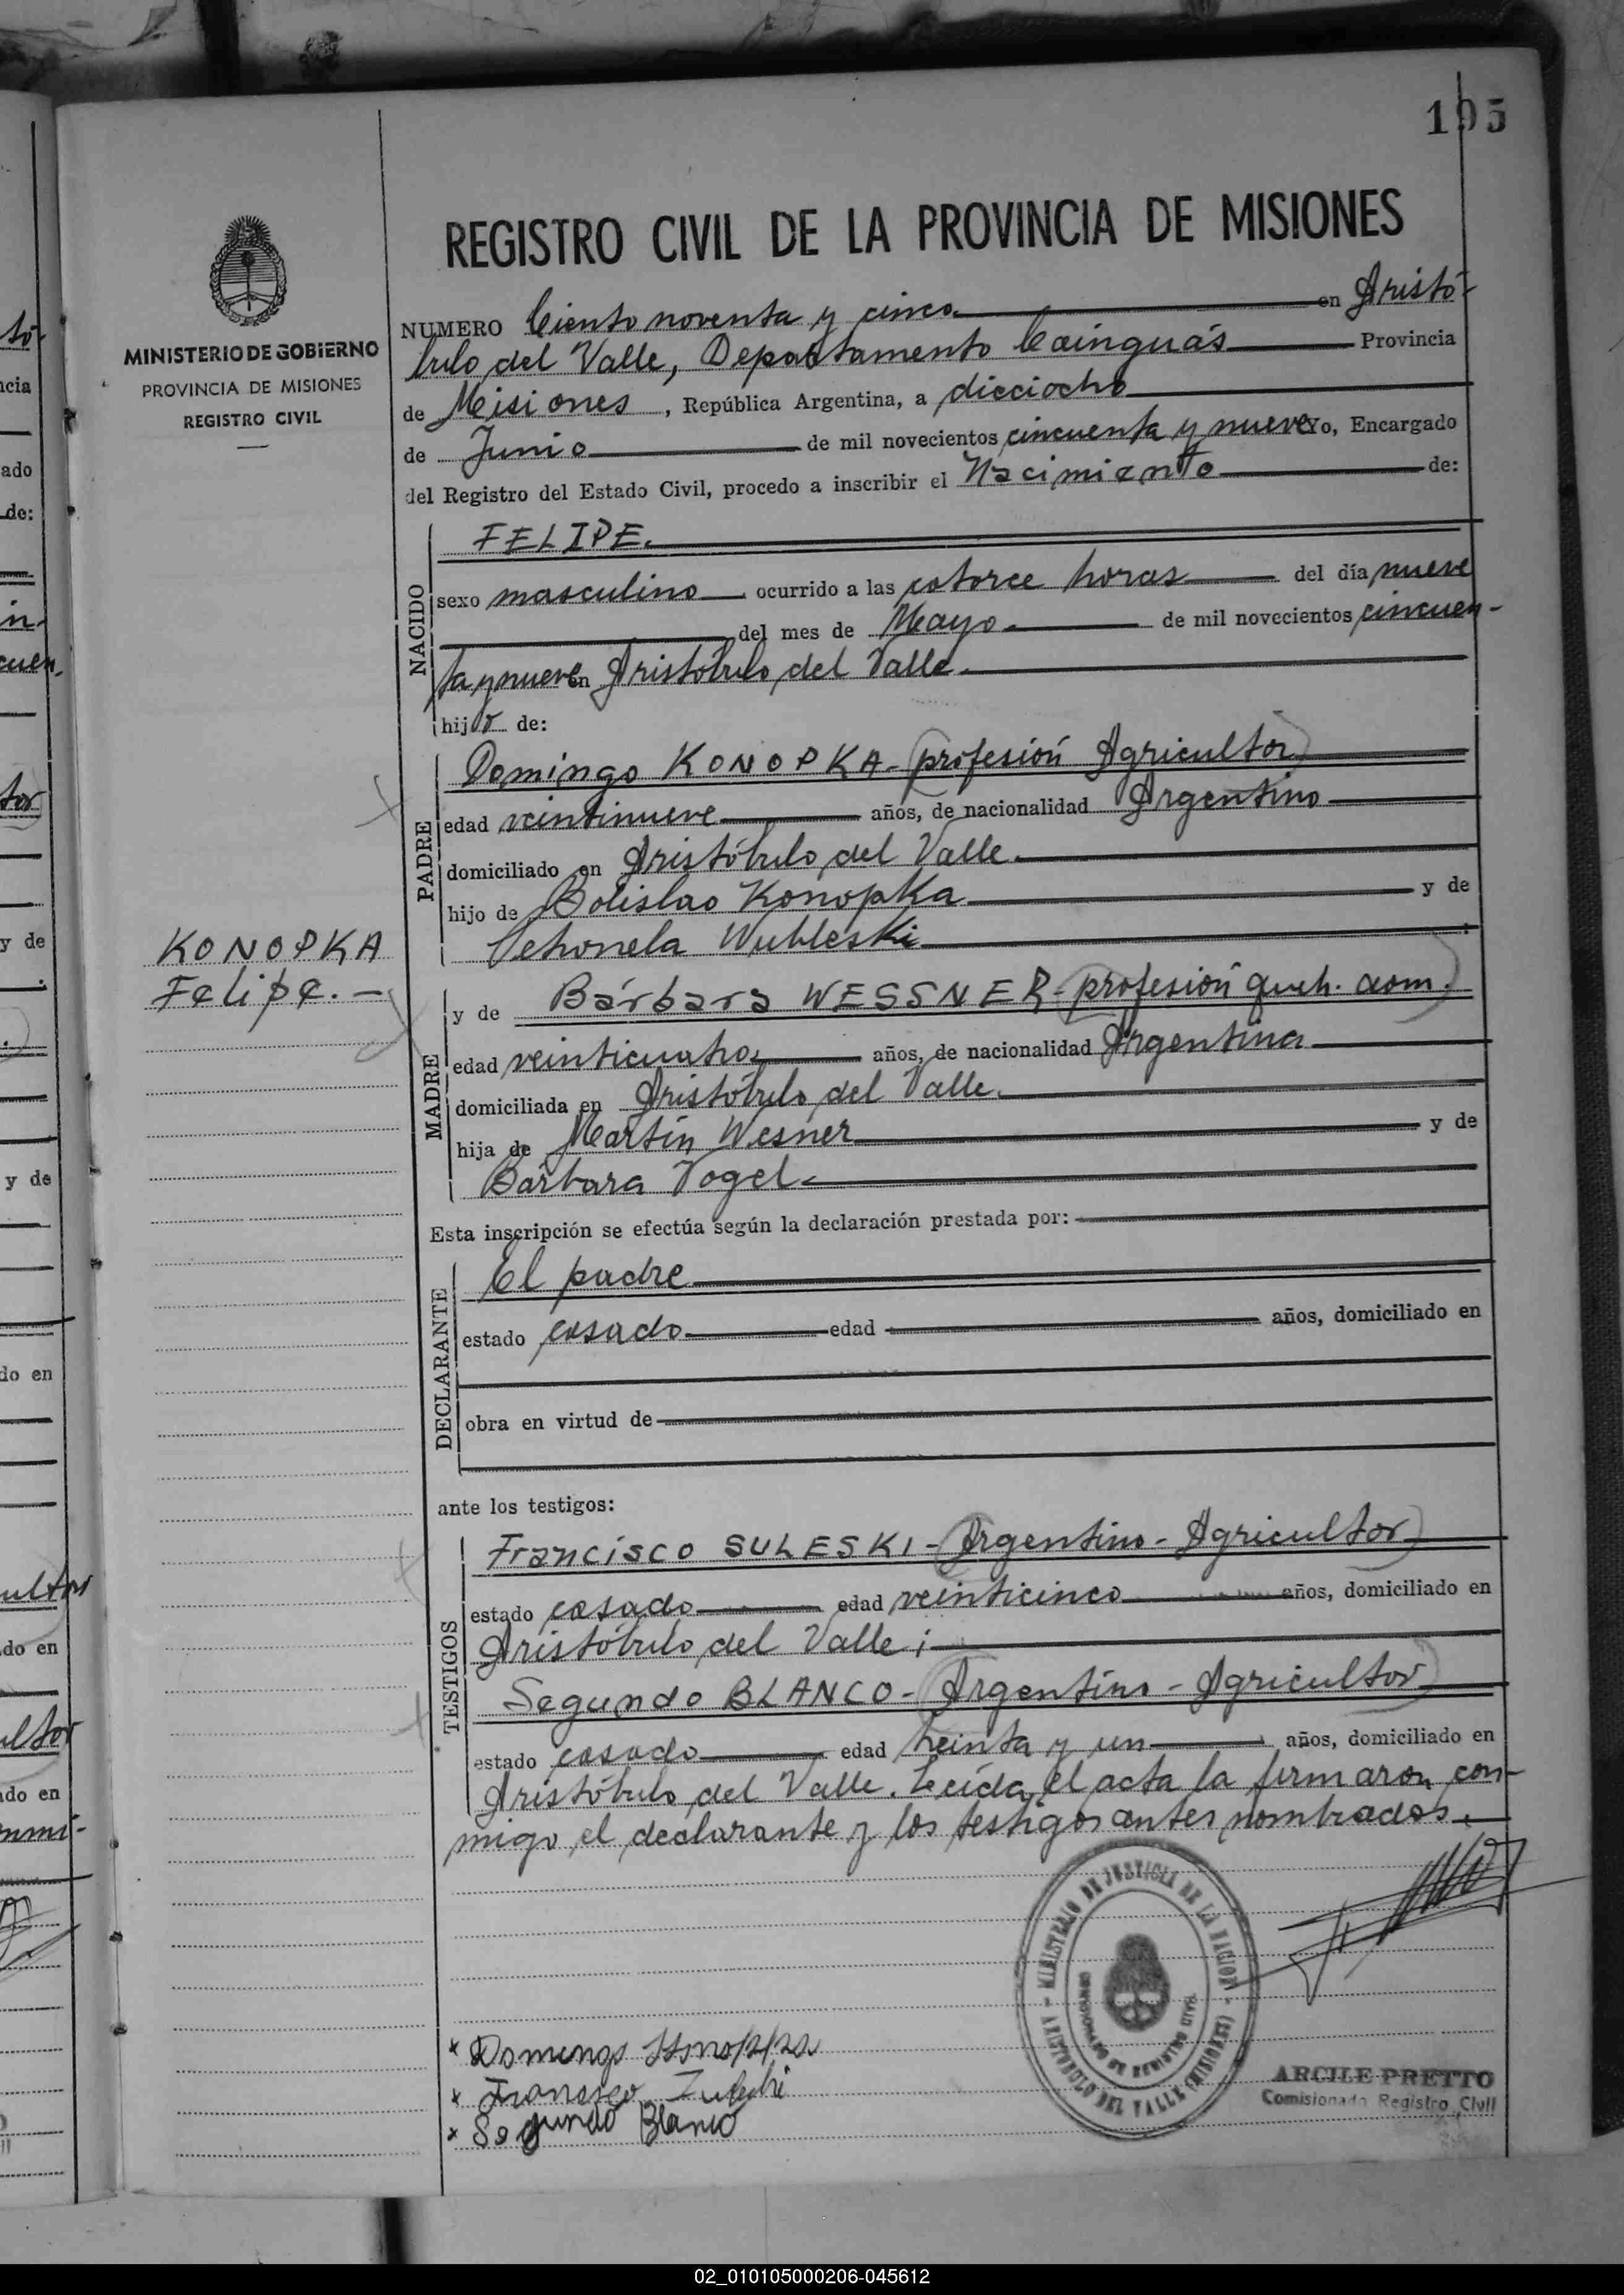 195
REGISTRO CIVIL DE LA PROVINCIA DE MISIONES
MINISTERIO DE GOBIERNO
PROVINCIA DE MISIONES
REGISTRO CIVIL
NUMERO Ciento noventa y cinco en Aristó-
bulo del Valle, Departamento Cainguás Provincia
de Misiones, República Argentina, a dieciocho
de Junio de mil novecientos cincuenta y nueve Yo, Encargado
del Registro del Estado Civil, procedo a inscribir el Nacimiento de:
NACIDO
FELIPE.
sexo masculino ocurrido a las catorce horas del día nueve
del mes de Mayo de mil novecientos cincuen-
ta y nueve en Aristóbulo del Valle.
hijo de:
PADRE
Domingo KONOPKA - (profesión Agricultor)
edad veintinueve años, de nacionalidad Argentino
domiciliado en Aristóbulo del Valle.
hijo de Bolislao Konopka y de
Wubleski
KONOPKA
Felipe. -
MADRE
y de Bárbara WESSNER - (profesión queh. dom.)
edad veinticuatro años, de nacionalidad Argentina
domiciliada en Aristóbulo del Valle.
hija de Martín Wesner y de
Bárbara Vogel.
Esta inscripción se efectúa según la declaración prestada por:
DECLARANTE
El padre
estado casado edad años, domiciliado en
obra en virtud de
ante los testigos:
TESTIGOS
Francisco SULESKI - (Argentino - Agricultor)
estado casado edad veinticinco años, domiciliado en
Aristóbulo del Valle;
Segundo BLANCO - (Argentino - Agricultor)
estado casado edad treinta y un años, domiciliado en
Aristóbulo del Valle. Leída el acta la firmaron con-
migo el declarante y los testigos antes nombrados.
MINISTERIO DE JUSTICIA DE LA NACION
ARISTOBULO DEL VALLE (MISIONES)
x Domingo
x Francisco
x Segundo Blanco
ARCILE PRETTO
Comisionado Registro Civil
02_010105000206-045612